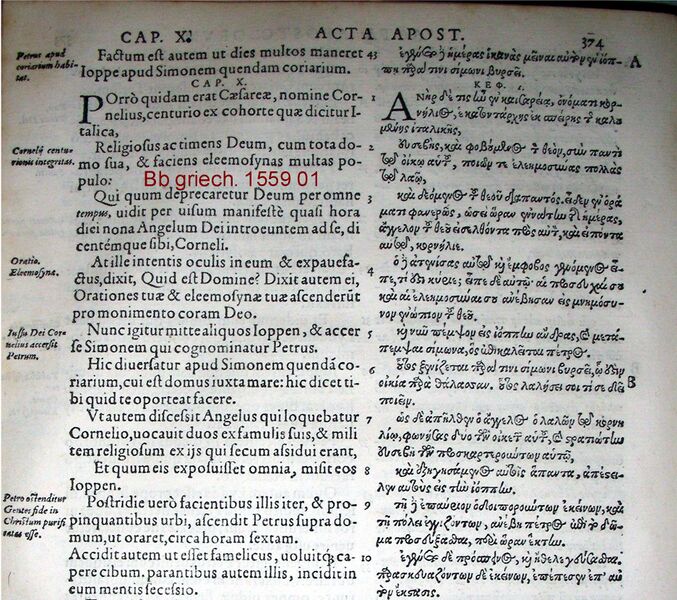 CAP. X.
ACTA APOST.
374
Petrus apud
coriarium habi-
tat.
Cornelij centu-
rionis integritas.
Oratio.
Eleemosyna.
Iussu Dei Cor-
nelius accersit
Petrum.
Petro ostenditur
Gentes fide in
Christum purifi
catas esse.
Factum est autem ut dies multos maneret 43
Ioppe apud Simonem quendam coriarium.
CAP. X.
POrrò quidam erat Cæsareæ, nomine Cor- 1
nelius, centurio ex cohorte quæ dicitur I-
talica,
Religiosus ac timens Deum, cum tota do- 2
mo sua, & faciens eleemosynas multas po-
pulo:
Bb griech. 1559 01
Qui quum deprecaretur Deum per omne 3
tempus, uidit per uisum manifestè quasi hora
diei nona Angelum Dei introeuntem ad se, di
centémque sibi, Corneli.
At ille intentis oculis in eum & expauefa- 4
ctus, dixit, Quid est Domine? Dixit autem ei,
Orationes tuæ & eleemosynæ tuæ ascenderūt
pro monimento coram Deo.
Nunc igitur mitte aliquos Ioppen, & accer 5
se Simonem qui cognominatur Petrus.
Hic diuersatur apud Simonem quendā co- 6
riarium, cui est domus iuxta mare: hic dicet ti-
bi quid te oporteat facere.
Vt autem discessit Angelus qui loquebatur 7
Cornelio, uocauit duos ex famulis suis, & mili
tem religiosum ex ijs qui secum assidui erant,
Et quum eis exposuisset omnia, misit eos 8
Ioppen.
Postridie uerò facientibus illis iter, & pro- 9
pinquantibus urbi, ascendit Petrus supra do-
mum, ut oraret, circa horam sextam.
Accidit autem ut esset famelicus, uoluitq; ca 10
pere cibum. parantibus autem illis, incidit in
eum mentis secessio.
ἐγένετο δὲ ἡμέρας ἱκανὰς μεῖναι αὐτὸν ἐν ἰόπ- A
πῃ παρά τινι σίμωνι βυρσεῖ.
ΚΕΦ. ί.
ΑΝὴρ δέ τις ἦν ἐν καισαρείᾳ, ὀνόματι κορ-
νήλιος, ἑκατοντάρχης ἐκ σπείρης τῆς καλου
μένης ἰταλικῆς,
εὐσεβὴς, καὶ φοβούμενος τὸν θεὸν, σὺν παντὶ
τῷ οἴκῳ αὐτοῦ, ποιῶν τε ἐλεημοσύνας πολλὰς
τῷ λαῷ,
καὶ δεόμενος τοῦ θεοῦ διαπαντός. εἶδεν ἐν ὁρά
ματι φανερῶς, ὡσεὶ ὥραν ἐννάτην τῆς ἡμέρας,
ἄγγελον τοῦ θεοῦ εἰσελθόντα πρὸς αὐτὸν, καὶ εἰπόντα
αὐτῷ, κορνήλιε.
ὁ δὲ ἀτενίσας αὐτῷ καὶ ἔμφοβος γενόμενος εἶ-
πε, τί ἐστι κύριε; εἶπε δὲ αὐτῷ. αἱ προσευχαί σου
καὶ αἱ ἐλεημοσύναι σου ἀνέβησαν εἰς μνημόσυ-
νον ἐνώπιον τοῦ θεοῦ.
καὶ νῦν πέμψον εἰς ἰόππην ἄνδρας, καὶ μετά-
πεμψαι σίμωνα, ὃς ἐπικαλεῖται πέτρος.
οὗτος ξενίζεται παρά τινι σίμωνι βυρσεῖ, ᾧ ἐστιν
οἰκία παρὰ θάλασσαν. οὗτος λαλήσει σοι τί σε δεῖ B
ποιεῖν.
ὡς δὲ ἀπῆλθεν ὁ ἄγγελος ὁ λαλῶν τῷ κορνη
λίῳ, φωνήσας δύο τῶν οἰκετῶν αὐτοῦ, καὶ στρατιώτην
εὐσεβῆ τῶν προσκαρτερούντων αὐτῷ,
καὶ ἐξηγησάμενος αὐτοῖς ἅπαντα, ἀπέστει-
λεν αὐτοὺς εἰς τὴν ἰόππην.
τῇ δὲ ἐπαύριον ὁδοιπορούντων ἐκείνων, καὶ
τῇ πόλει ἐγγιζόντων, ἀνέβη πέτρος ἐπὶ τὸ δῶ-
μα προσεύξασθαι, περὶ ὥραν ἕκτην.
ἐγένετο δὲ πρόσπεινος, καὶ ἤθελε γεύσασθαι.
παρασκευαζόντων δὲ ἐκείνων, ἐπέπεσεν ἐπ' αὐ
τὸν ἔκστασις.